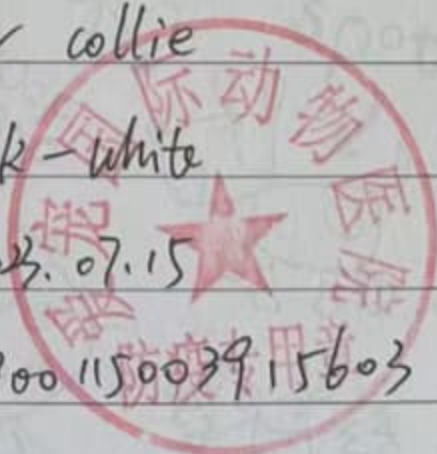 collie
k-white
23.07.15
900115003915603
爱宠国际动物医院
防疫专用章